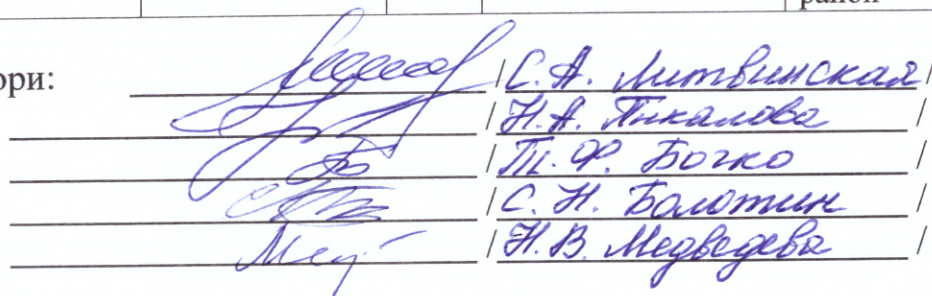 район
ори: /С.А. Литвинская/
/Н.А. Пикалова /
/Т.Ф. Бочко /
/С.Н. Болотин /
/Н.В. Медведева /